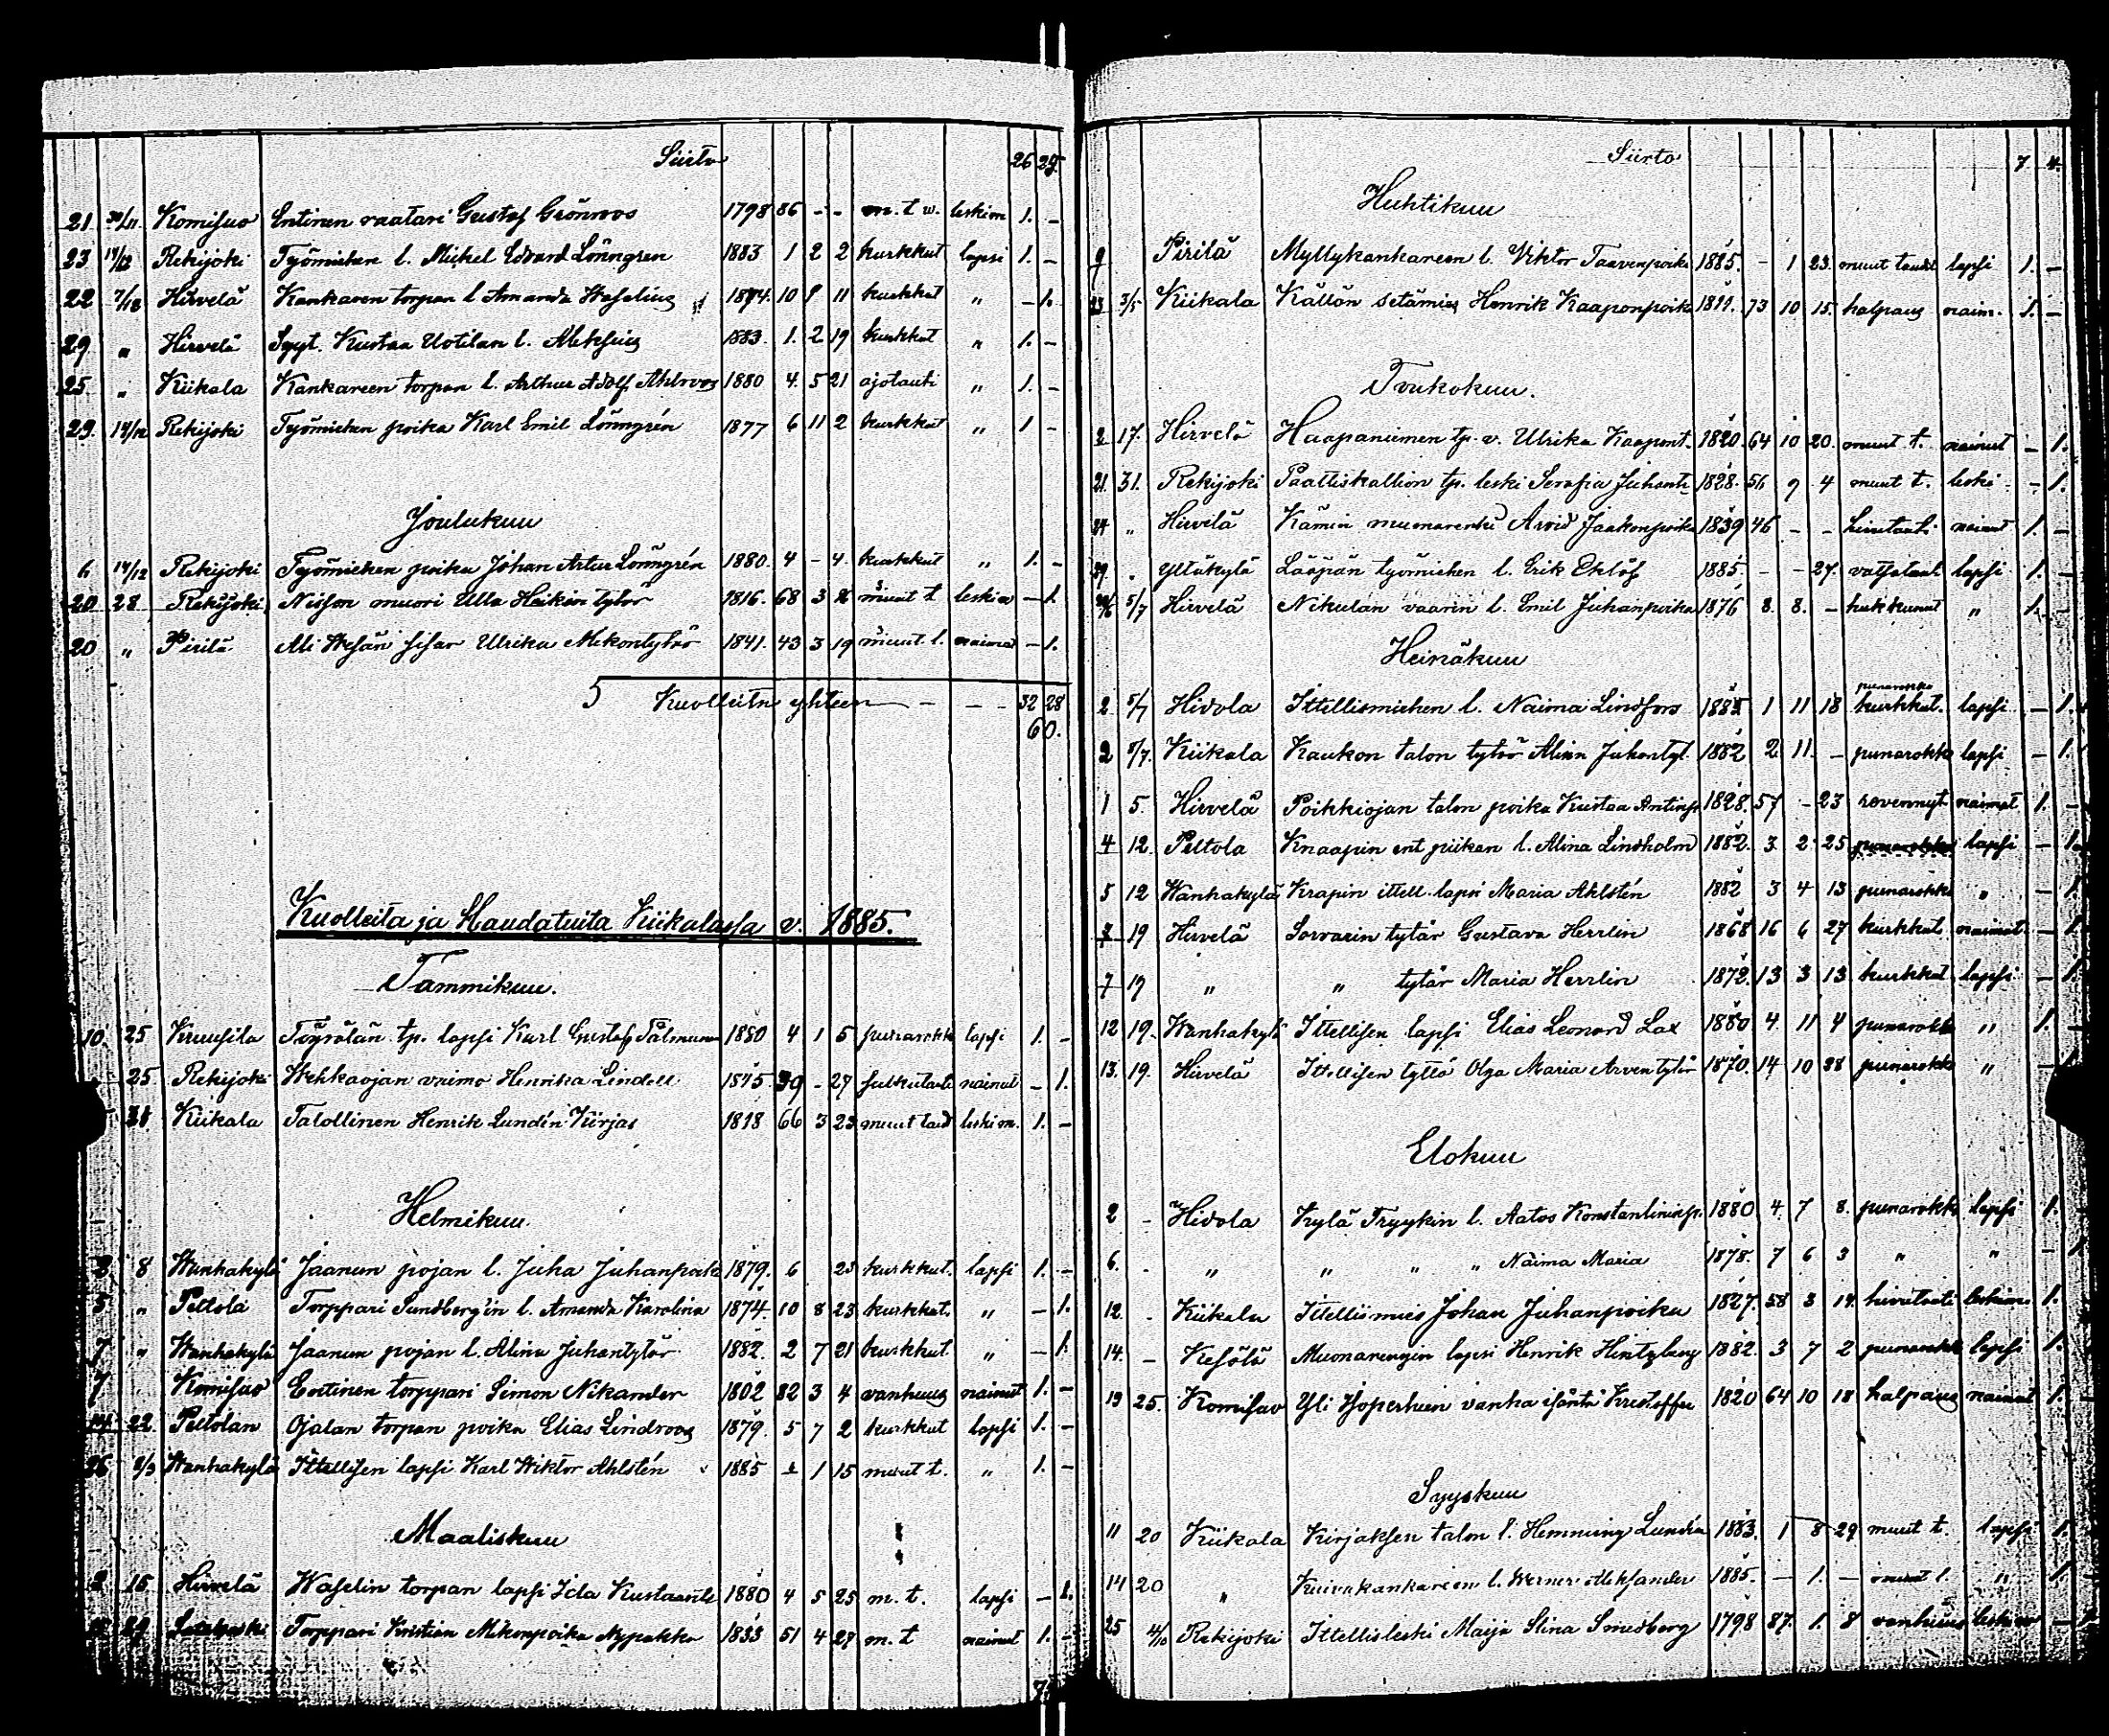 Siirto 26 28.
21 30/11. Komisuo Entinen vaatari Gustaf Grönroos 1798 86 - - m. t w. leskim 1. -
23 14/12 Rekijoki Työmiehen l. Mickel Edvard Lönngren 1883 1 2 2 kurkkut lapsi 1. -
22 7/12 Hirvelä Kankaren torpan l Amanda Waselius 1874. 10 11 kurkkut " - 1.
29 " Hirvelä Syyt. Kustaa Uotilan l. Aleksius 1883. 1. 2 19 kurkkut " 1. -
25. " Kiikala Kankareen torpan l. Arthur Adolf Ahlroos 1880 4. 5 21 ajotauti " 1. -
29. 14/12 Rekijoki Työmiehen poika Karl Emil Lönngrén 1877 6 11 2 kurkkut " 1 -
Joulukuu
6 14/12 Rekijoki Työmiehen poika Johan Artur Lönngrén 1880. 4 - 4. kurkkut " 1. -
20 28 Rekijoki Nisson muori Ulla Heikin tytär 1816. 68 3 muut t leskia - 1.
20 " Pirilä Ali Wesän sisar Ulrika Mikontytär 1841. 43 3 19 muut t. naimat - 1.
5 Kuolleita yhteen - - - 32 28
60.
Kuolleita ja Haudatuita Kiikalassa v. 1885.
Tammikuu.
10. 25 Kruusila Töyrälän tp. lapsi Karl Gustaf Pålman 1880 4 1 5 punarokk lapsi 1. -
25 Rekijoki Wehkaojan vaimo Henrika Lindell 1845. 39 - 27 naimat - 1.
Kiikala Talollinen Henrik Lundén Kirjas 1818 66 3 23 muut taud leskim. 1. -
Helmikuu.
3 8 Wanhakylä Jaanun pojan l. Juha Juhanpoika 1879. 6 23 kurkkut. lapsi 1. -
5 " Peltola Torppari Sundberg'in l. Amanda Karolina 1874. 10 8 23 kurkkut. " - 1.
7 " Wanhakylä Jaanun pojan l. Alina Juhantytär 1882. 2 7 21 kurkkut " - 1.
7 Komisuo Entinen torppari Simon Nikander 1802 82 3 4 vanhuus naimat 1. -
22. Peltolan Ojalan torpan poika Elias Lindroos 1879. 5 7 2 kurkkut lapsi 1. -
26 2/3 Wanhakylä Ittellisen lapsi Karl Wiktor Ahlstén 1885 - 1 15 muut t. " 1. -
Maaliskuu
2 15 Hirvelä Waselin torpan lapsi Ida Kustaant. 1880 4 5 25 m. t. lapsi - 1.
29 Torppari Kristian Mikonpoika Nypakka 1833 51 4 27 m. t naimat 1. -
Siirto 7 4.
Huhtikuu
9 Pirilä Myllykankareen l. Viktor Taavenpoika 1885. - 1 23. muut taudit lapsi 1. -
23 3/5 Kiikala Källän setämies Henrik Kaaponpoika 1811. 73 10 15. halpaus naim. 1. -
Toukokuu.
2 17. Hirvelä Haapaniemen tp. v. Ulrika Kaapont. 1820. 64 10 20. muut t. naimat - 1.
21. 31. Rekijoki Paattiskallion tp. leski Serafia Juhant. 1828. 56 9 4 muut t. leski - 1.
24 " Hirvelä Kämin muonarenki Arvid Jaakonpoika 1839 46 - - naimat 1. -
29. Yltäkylä Lääpän työmiehen l. Erik Eklöf 1885 - - 27. vatsataut lapsi 1. -
5/7 Hirvelä Nikulan vaarin l. Emil Juhanpoika 1876 8. 8. - hukkunut " 1. -
Heinäkuu
2 5/7 Hidola Ittellismiehen l. Naima Lindfors 1883 1 11 18 punarokko kurkkut. lapsi - 1.
2 5/7. Kiikala Kaukon talon tytär Alina Juhantyt. 1882 2 11. - punarokko lapsi - 1.
1 5. Hirvelä Poikkiojan talon poika Kustaa Antinp. 1828. 57 - 23 revennyt naimat 1. -
4 12. Peltola Knaapin ent piikan l. Alina Lindholm 1882. 3 2 25 punarokko lapsi - 1.
5 12 Wanhakylä Krapin ittell. lapsi Maria Ahlstén 1882 3 4 13 punarokko " - 1.
7 19 Hirvelä Sorvarin tytär Gustava Herrlin 1868 16 6 27 kurkkut. naimat. - 1.
7 19 " " tytär Maria Herrlin 1872. 13 3 13 kurkkut lapsi - 1.
12 19. Wanhakylä Ittellisen lapsi Elias Leonard Lax 1880 4. 11 4 punarokko " 1. -
13. 19. Hirvelä Ittellisen tyttö Olga Maria Arventytär 1870. 14 10 28 punarokko " - 1.
Elokuu
2 - Hidola Kylä Tryykin l. Aatos Konstantininp. 1880 4. 7 8. punarokko lapsi 1.
6. - " " " " Naima Maria 1878. 7 6 3 " " - 1.
12. - Kiikala Ittellismies Johan Juhanpoika 1827. 58 3 19. leskim. 1.
14. - Kesälä Muonarengin lapsi Henrik Hintzberg 1882. 3 7 2 punarokk lapsi 1.
19 25. Komisuo Yli Isoperheen vanha isäntä Kristoffer 1820 64 10 18 halpaus naimat 1. -
Syyskuu
11 20 Kiikala Kirjaksen talon l. Hemming Lundén 1883. 1 8 29 muut t. lapsi 1. -
14 20 " Kuivakankareen l. Werner Aleksander 1885. - 1. - muut t. " 1.
25 4/10 Rekijoki Ittellisleski Maija Stina Smedberg 1798 87. 1. 8 vanhuus - 1.